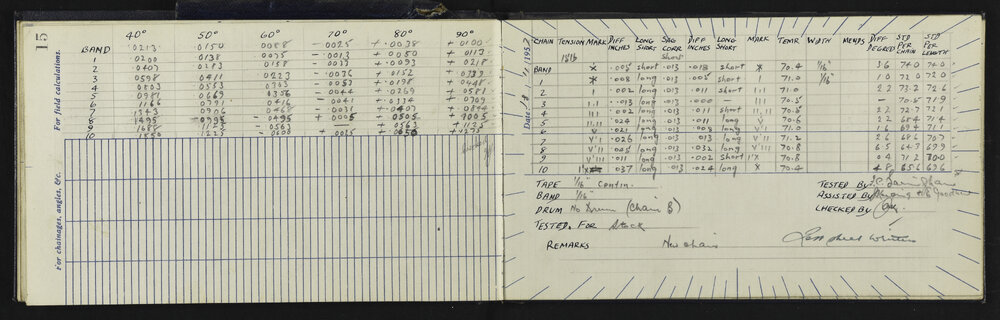 15
For field calculations.
For chainages, angles, &c.
40° 50° 60° 70° 80° 90°
BAND .0213 .0150 .0088 - .0025 + .0038 + .0100
1 .0200 .0138 .0075 - .0013 + .0050 + .0113
2 .0407 .0283 .0158 - .0033 + .0093 + .0218
3 .0598 .0411 .0223 - .0036 + .0152 + .0339
4 .0803 .0553 .0303 - .0053 + .0198 + .0448
5 .0981 .0669 .0356 - .0044 + .0269 + .0581
6 .1166 .0791 .0416 - .0041 + .0334 + .0709
7 .1343 .0906 .0468 .0031 .0407 .0844
8 .1495 .0995 - .0495 + .0005 + .0505 + .1005
9 .1688 .1125 - .0563 — + .0563 + .1125
10 .1850 .1225 .0600 + .0025 + .0650 + .1275
Date 1957
CHAIN TENSION MARK DIFF INCHES LONG SHORT SAG CORR. Short DIFF INCHES LONG SHORT MARK TEMP. WIDTH MENDS DIFF DEGREES STD PER CHAIN STD PER LENGTH
15 lb
BAND x .005 short .013 .018 short * 70.4 1/16" 3.6 74.0 74.0
1 * .008 long .013 .005 short 1 71.0 1/16" 1.0 72.0 72.0
2 1 .002 long .013 .011 short 11 71.0 2.2 73.2 72.6
3 11 .013 long .013 .000 — 111 70.5 — 70.5 71.9
4 111 .002 long .013 .011 short 1111 70.5 2.2 72.7 72.1
5 1111 .024 long .013 .011 long V 70.6 2.2 68.4 71.4
6 V .021 long .013 .008 long V1 71.0 1.6 69.4 71.1
7 V1 .026 long .013 .013 long V11 71.2 2.6 68.6 70.7
8 V11 .045 long .013 .032 long V111 70.8 6.5 64.3 69.9
9 V111 .011 long .013 .002 short 1X 70.8 0.4 71.2 70.0
10 1X .037 long .013 .024 long x 70.4 4.8 65.6 69.6
TAPE 1/16" Contin.
BAND 1/16"
DRUM No Drum (Chain B)
TESTED FOR Stock
REMARKS New chain
TESTED BY
ASSISTED BY
CHECKED BY